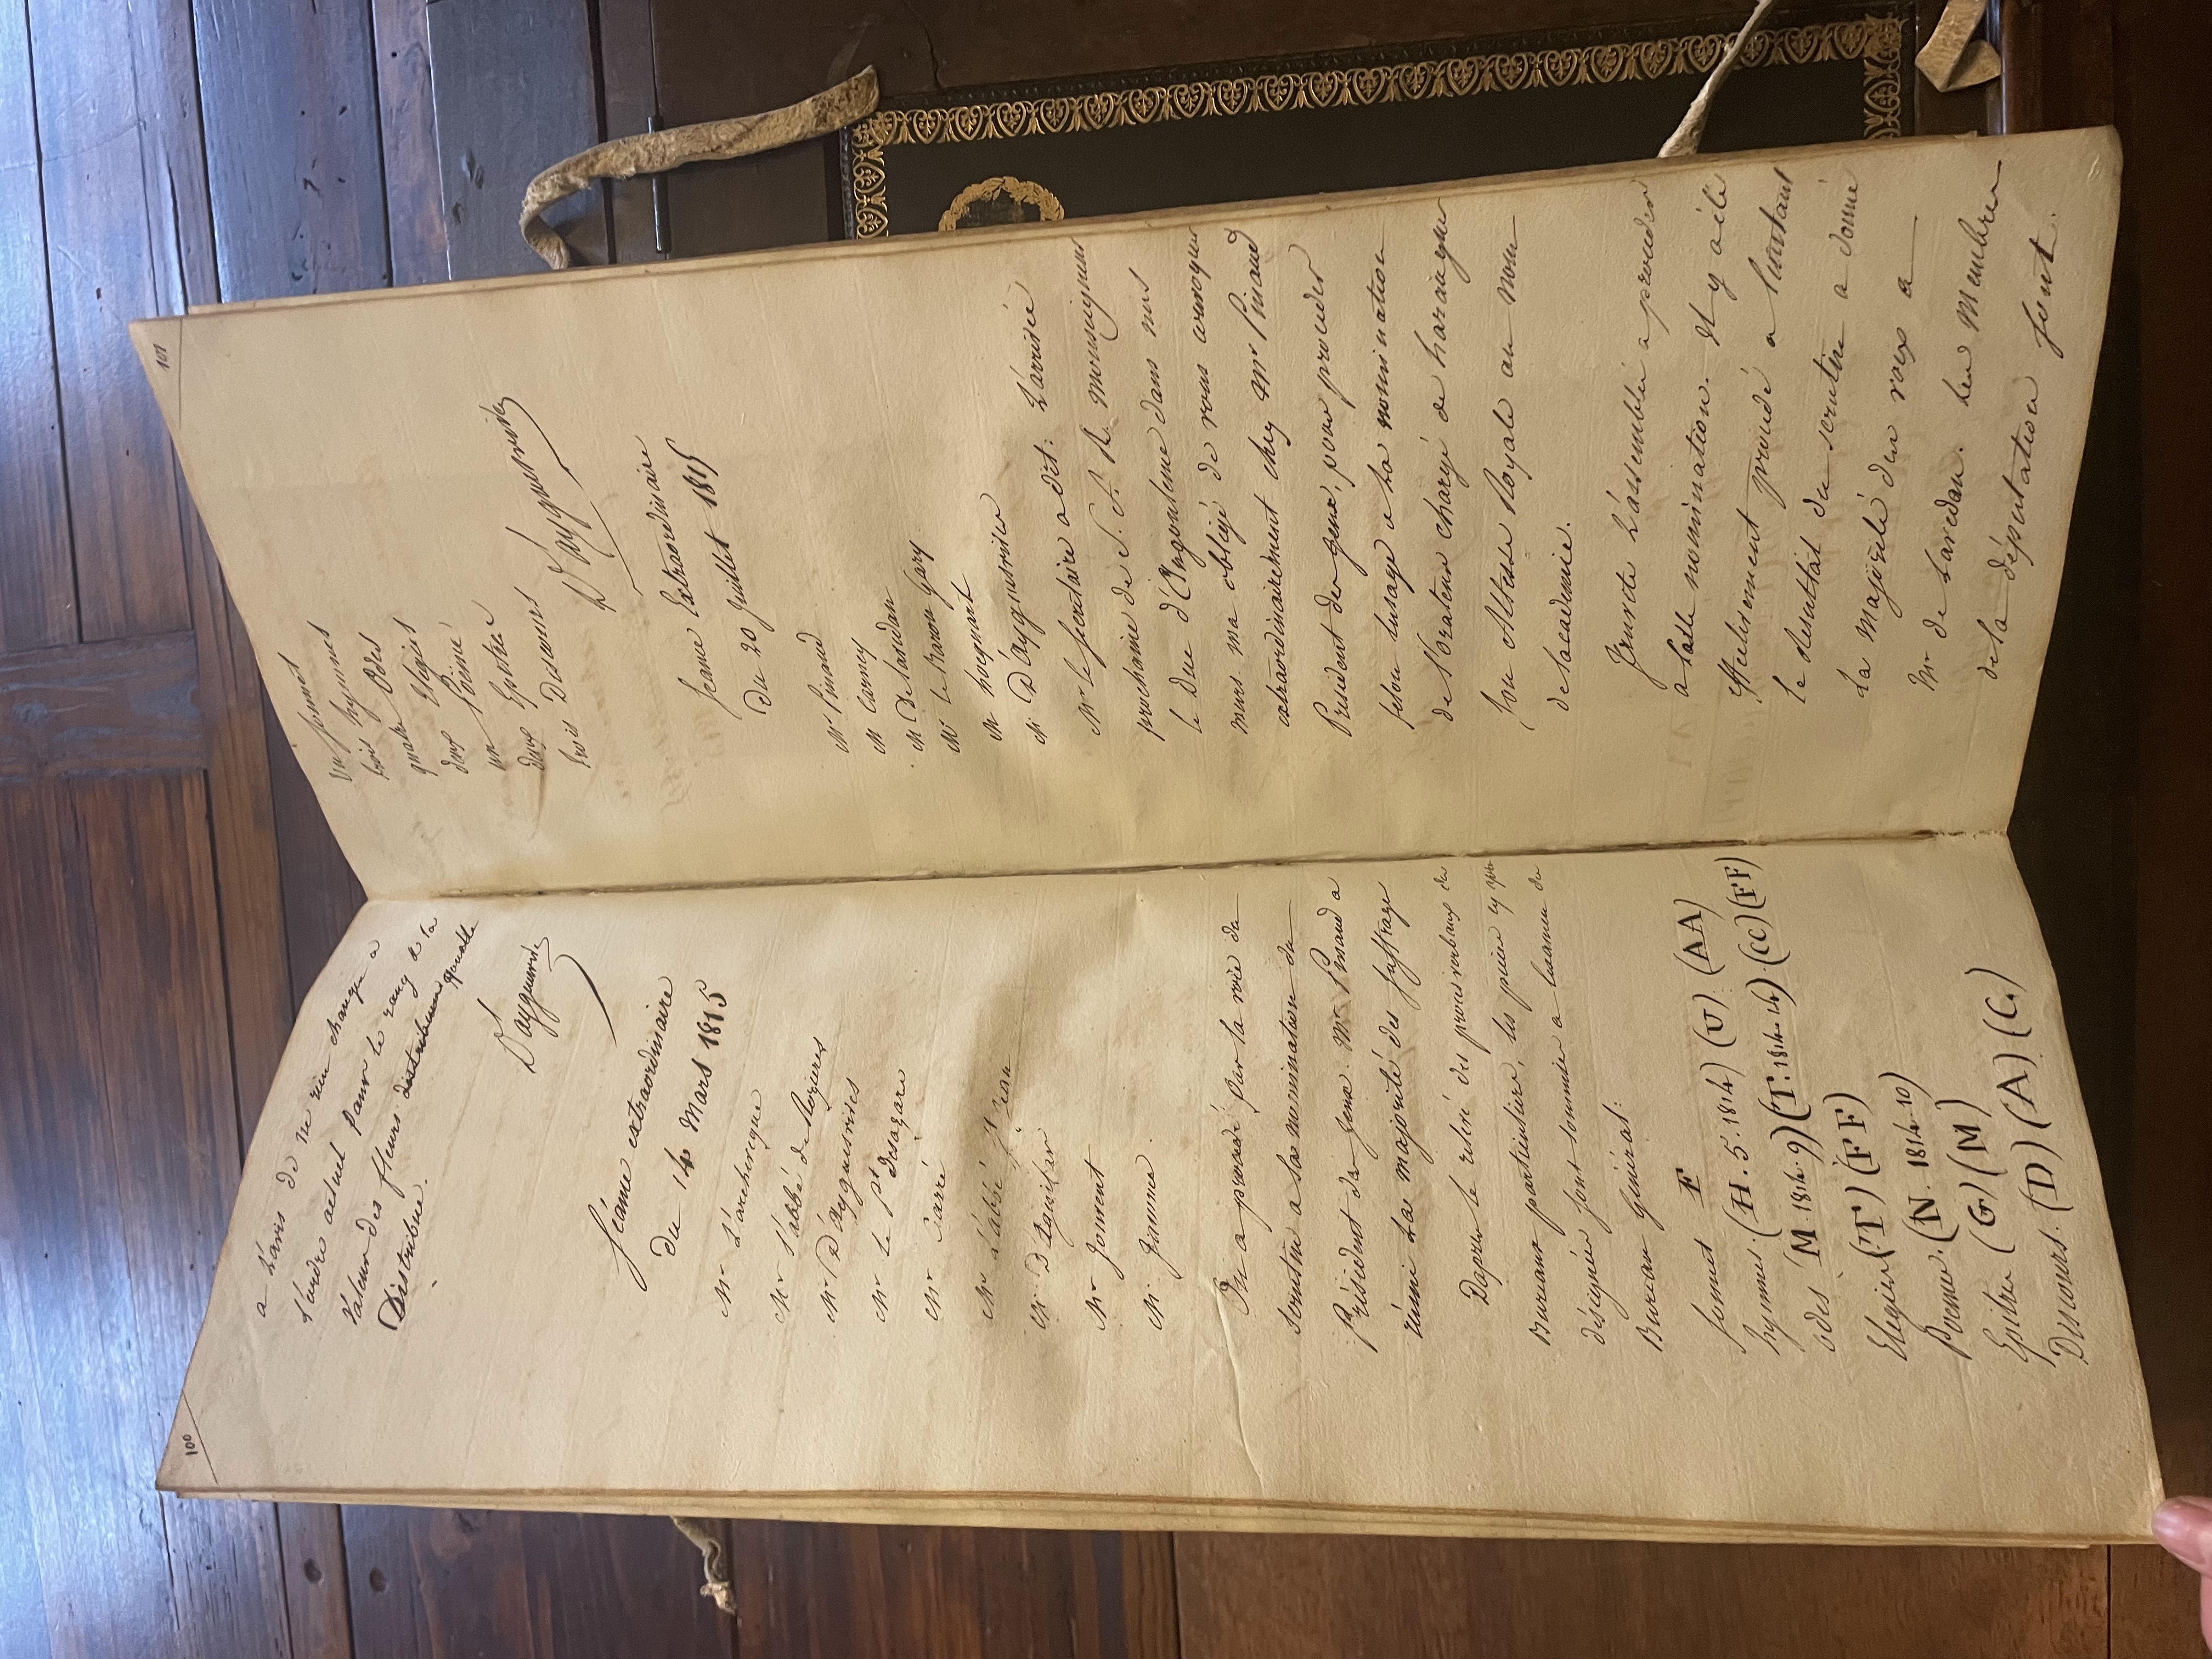 100
a L'avis de ne rien changer a
l'ordre actuel pour le rang de la
valeur des fleurs distribuera quelle
Distribue.
D'ayguesvives
Séance extraordinaire
du 14 Mars 1815
Mr L'archeveque
Mr l'abbé de Rozieres
Mr D'Ayguesvives
Mr Le Pt Desazars
Mr Carré
Mr L'abbé St Jean
Mr D'Aguilar
Mr Jomment
Mr Jamme.
On a procedé par la voie du
scrutin a la nomination du
Président des Jeux. Mr Pinaud a
réuni la majorité des suffrages
Dapres le relevé des procès verbaux des
Bureaux particuliers, les pieces cy apres
désignées sont soumises a lexamen du
Bureau général:
Sonnet F
hymnes. (H. 5. 1814) (U) (AA)
odes (M. 1814. 9) (T. 1814. 14) (CC) (FF)
Elegies (T) (FF)
Poemes. (N. 1814. 10)
Epitres (G) (M)
Discours. (D) (A) (C.)
101
un sonnet
trois hymnes
quatre Odes
deux Elegies
un Poëme
deux Epitres
trois Discours
D'Ayguesvives
Seance Extraordinaire
Du 20 Juillet 1815
Mr Pinaud
Mr Carney
Mr De Lavedan
Mr le Baron Gary
Mr hocquart
Mr D'ayguesvives
Mr le secretaire a dit: L'arrivée
prochaine de S. A. R. Monseigneur
le Duc d'Angouleme dans nos
murs ma obligé de vous convoquer
extraordinairement chez Mr Pinaud
Président des jeux, pour proceder
selon lusage a la nomination
de l'orateur chargé de haranguer
Son Altesse Royale au nom
de Lacademie.
Ensuite L'assemblée a proceder
a lade nomination. Il y a été
effectivement procédé a linstant
le resultat du scrutin a donné
La majorité des voix a
Mr de Lavedan. Les Membres
de la députation sont.